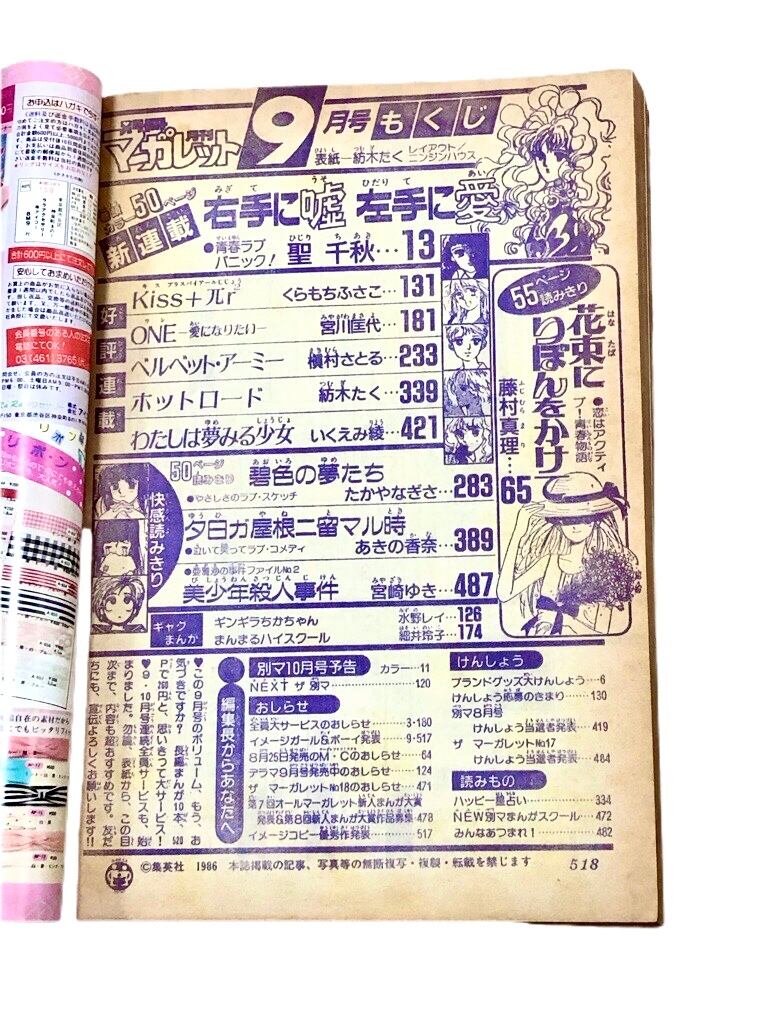 お申込はハガキで
安心しておまめいただ
会員番号のある人の注文は
電話にてOK!
別冊
月刊
マーガレット
9月号もくじ
表紙―紡木たく
レイアウト/
ニンジンハウス
50ページ
新連載
右手に嘘 左手に愛
●青春ラブ
パニック!
聖 千秋…13
好評連載
Kiss+πr²
くらもちふさこ…131
ONE―愛になりたい―
宮川匡代…181
ベルベット・アーミー
槇村さとる…233
ホットロード
紡木たく…339
わたしは夢みる少女
いくえみ綾…421
55ページ
読みきり
花束にりぼんをかけて
●恋はアクティブ!青春物語
藤村真理…
65
快感読みきり
50ページ
読みきり
碧色の夢たち
●やさしさのラブ・スケッチ
たかやなぎさ…283
夕日ガ屋根ニ留マル時
●泣いて笑ってラブ・コメディ
あきの香奈…389
美少年殺人事件
宮崎ゆき…487
ギャグ
まんが
ギンギラちかちゃん
水野レイ…126
まんまるハイスクール
細井玲子…174
編集長からあなたへ
♥この9月号のボリューム、もう、お
気づきですか? 長編まんが10本、520
Pで280円と、思いきって大サービス!
♥9・10月号連続全員サービスも、始
まりました。勿論、表紙から、この目
次まで、内容も超おすすめです。友だ
ちにも、宣伝よろしくお願いします!!
別マ10月号予告
カラー…11
NEXT ザ 別マ…120
おしらせ
全員大サービスのおしらせ…3・180
イメージガール&ボーイ発表…9・517
8月25日発売のM・Cのおしらせ…64
デラマ9月号発売中のおしらせ…124
ザ マーガレットNo.18のおしらせ…471
第7回オールマーガレット新人まんが大賞
発表&第8回新人まんが大賞作品募集…478
イメージコピー優秀作発表…517
けんしょう
ブランドグッズ大けんしょう…6
けんしょう応募のきまり…130
別マ8月号
けんしょう当選者発表…419
ザ マーガレットNo.17
けんしょう当選者発表…484
読みもの
ハッピー星占い…334
NEW別マまんがスクール…472
みんなあつまれ!…482
©集英社 1986 本誌掲載の記事、写真等の無断複写・複製・転載を禁じます
518